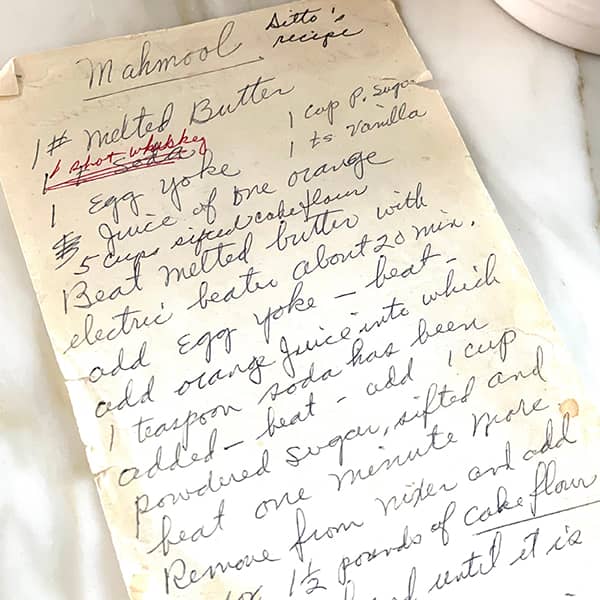 Mahmool
Sitto's
recipe
1# Melted Butter
1 Cup P. Sugar
1 shot whiskey
1 t Soda
1 ts Vanilla
1 Egg Yoke
Juice of one orange
5 cups sifted cake flour
Beat melted butter with
electric beater about 20 min.
add Egg yoke - beat -
add orange juice into which
1 teaspoon soda has been
added - beat - add 1 cup
powdered sugar, sifted and
beat one minute more.
Remove from mixer and add
1 1/2 pounds of cake flour
until it is